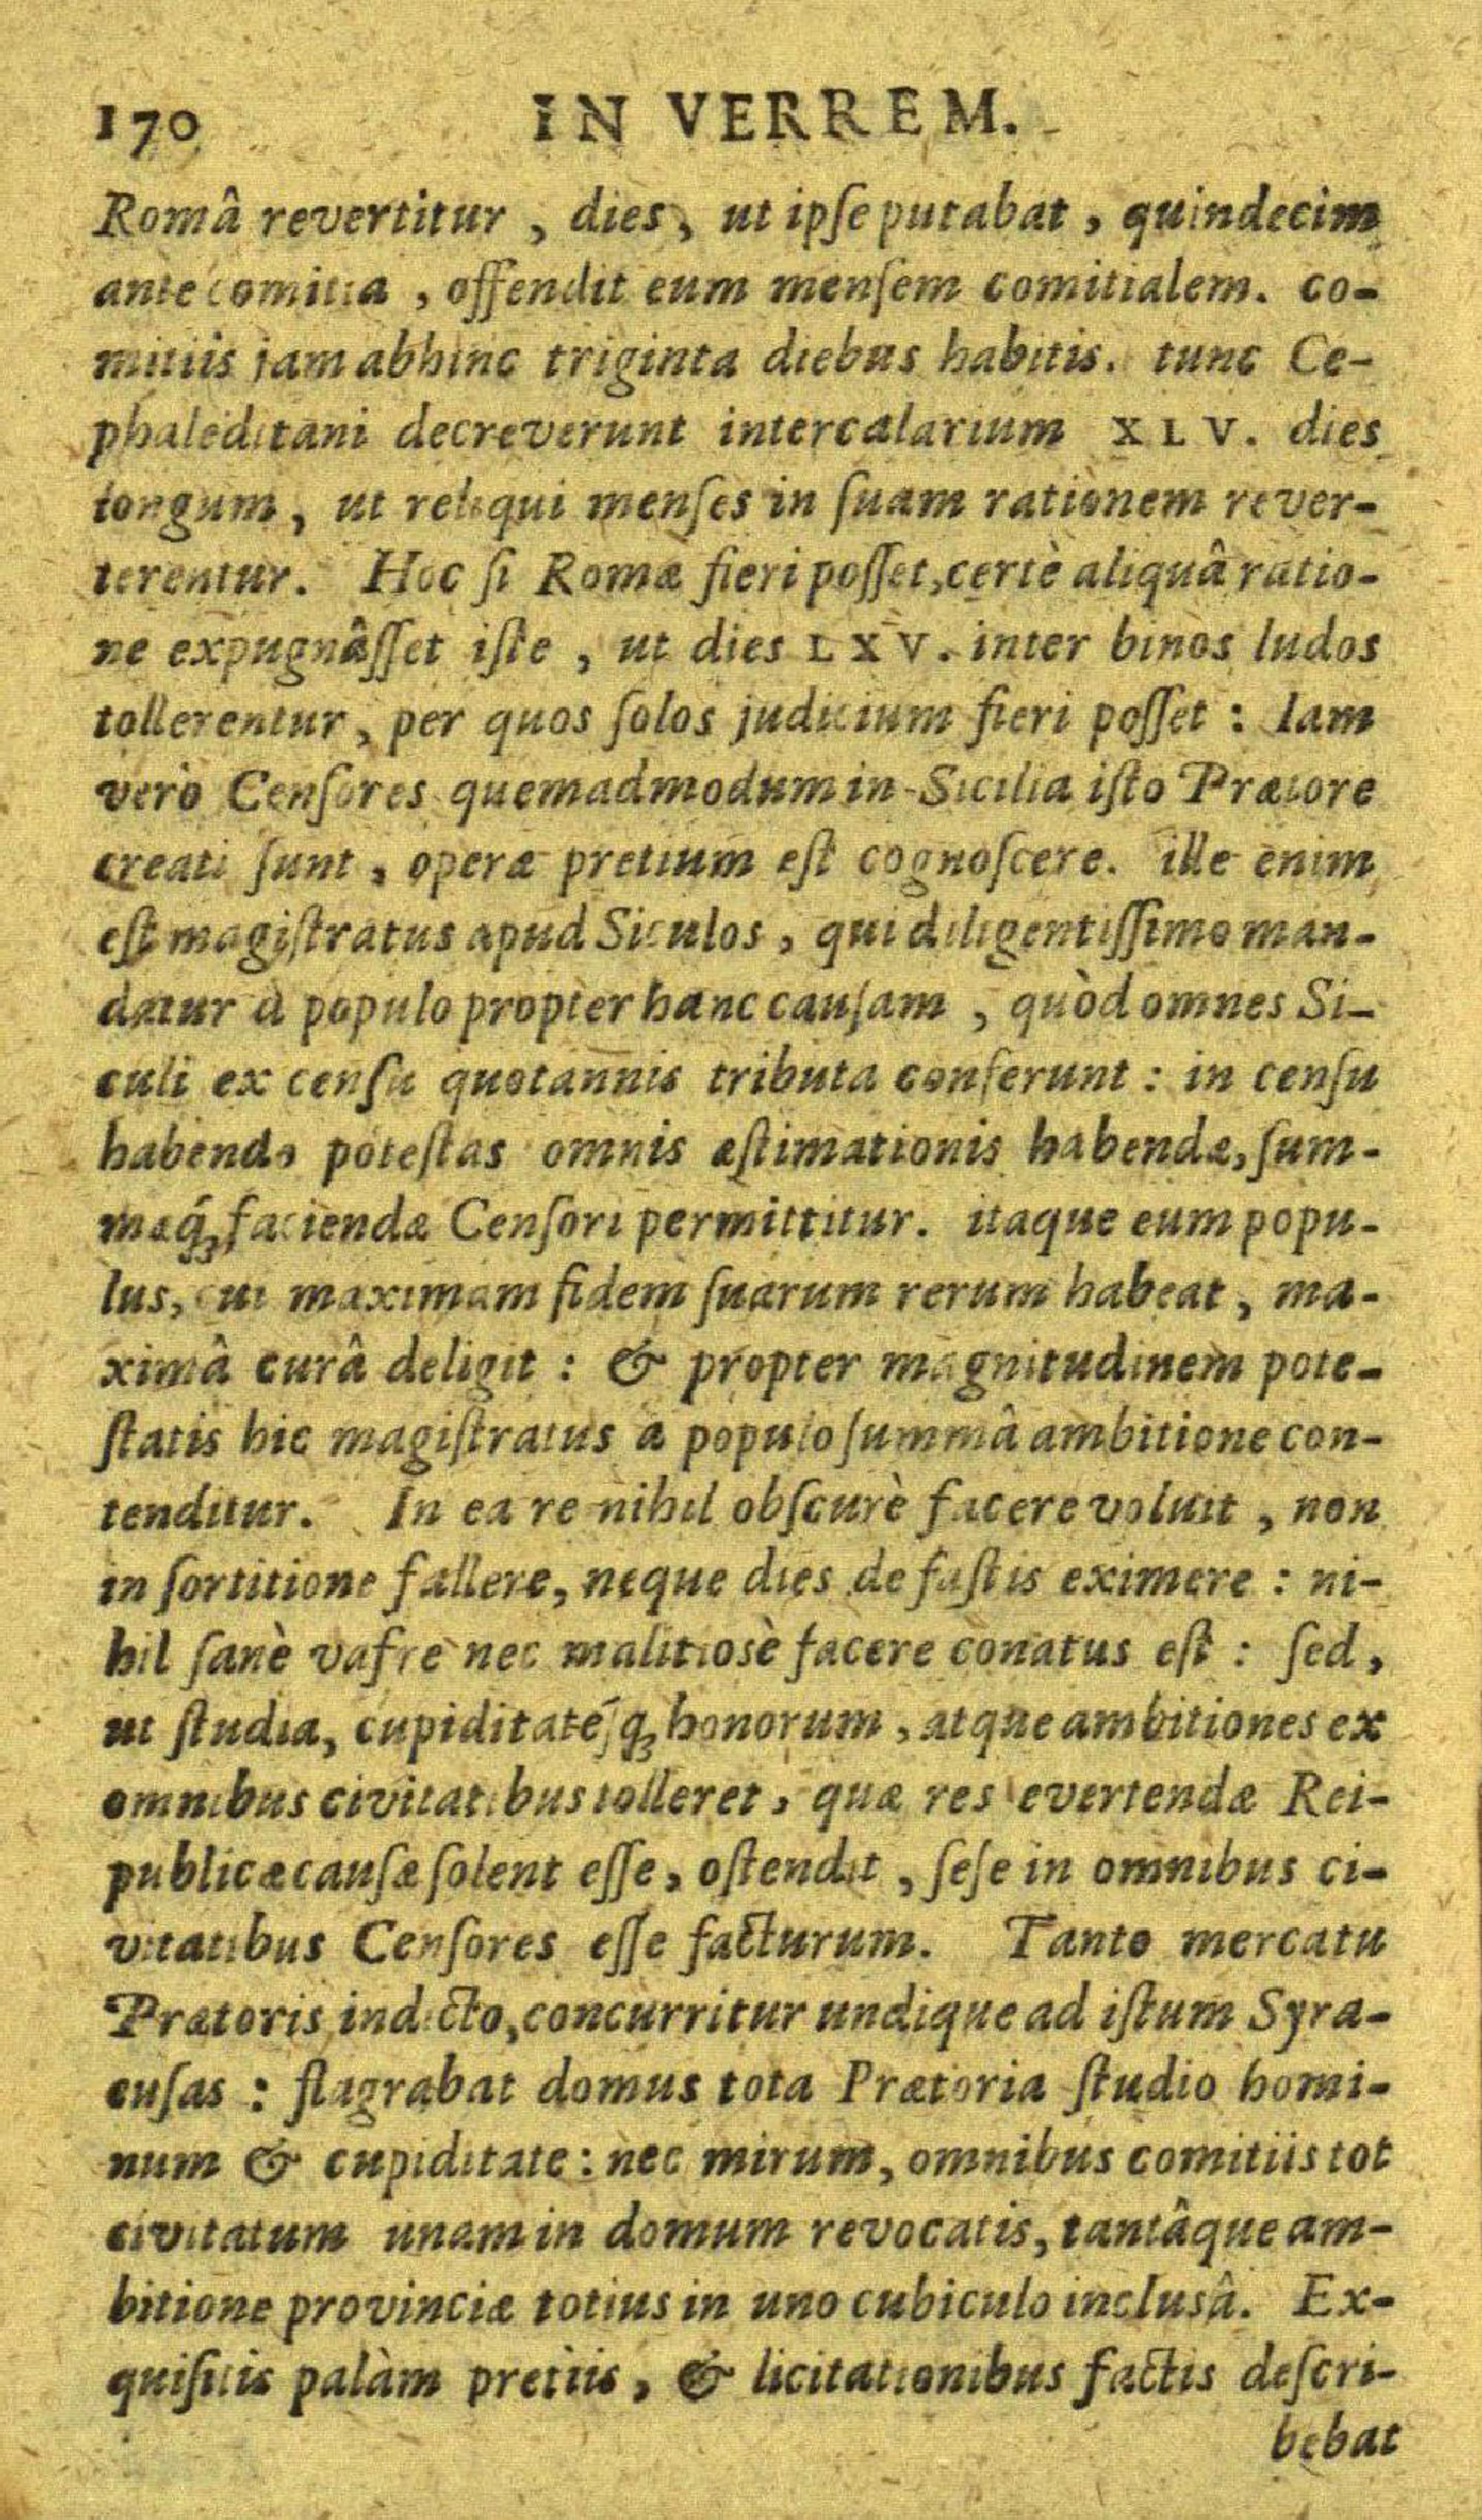 170 IN VERREM.
Româ revertitur, dies, ut ipſe putabat, quindecim
ante comitia, offendit eum menſem comitialem. co-
mitiis jam abhinc triginta diebus habitis. tunc Ce-
phaleditani decreverunt intercalarium XLV. dies
longum, ut reliqui menſes in ſuam rationem rever-
terentur. Hoc ſi Romæ fieri poſſet, certè aliquâ ratio-
ne expugnâſſet iſte, ut dies LXV. inter binos ludos
tollerentur, per quos ſolos judicium fieri poſſet: Iam
verò Cenſores quemadmodum in Sicilia iſto Prætore
creati ſunt, operæ pretium eſt cognoſcere. ille enim
eſt magiſtratus apud Siculos, qui diligentiſſime man-
datur à populo propter hanc cauſam, quòd omnes Si-
culi ex cenſu quotannis tributa conferunt: in cenſu
habendo poteſtas omnis æſtimationis habendæ, ſum-
mæq́ꝫ faciendæ Cenſori permittitur. itaque eum popu-
lus, cui maximam fidem ſuarum rerum habeat, ma-
ximâ curâ deligit: & propter magnitudinem pote-
ſtatis hic magiſtratus a populo ſummâ ambitione con-
tenditur. In ea re nihil obſcurè facere voluit, non
in ſortitione fallere, neque dies de faſtis eximere: ni-
hil ſanè vafrè nec malitiosè facere conatus eſt: ſed,
ut ſtudia, cupiditatéſq́ꝫ honorum, atque ambitiones ex
omnibus civitatibus tolleret, quæ res evertendæ Rei-
publicæ cauſæ ſolent eſſe, oſtendit, ſeſe in omnibus ci-
vitatibus Cenſores eſſe facturum. Tanto mercatu
Prætoris indicto, concurritur undique ad iſtum Syra-
cuſas: flagrabat domus tota Prætoria ſtudio homi-
num & cupiditate: nec mirum, omnibus comitiis tot
civitatum unam in domum revocatis, tantâque am-
bitione provinciæ totius in uno cubiculo inclusâ. Ex-
quiſitis palàm pretiis, & licitationibus factis deſcri-
bebat